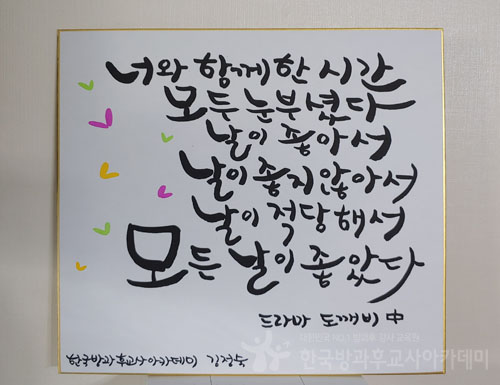 너와 함께한 시간
모두 눈부셨다
날이 좋아서
날이 좋지 않아서
날이 적당해서
모든 날이 좋았다
드라마 도깨비 中
대한민국 NO.1 방과후 강사 교육원
한국방과후교사아카데미
한국방과후교사아카데미 김정숙